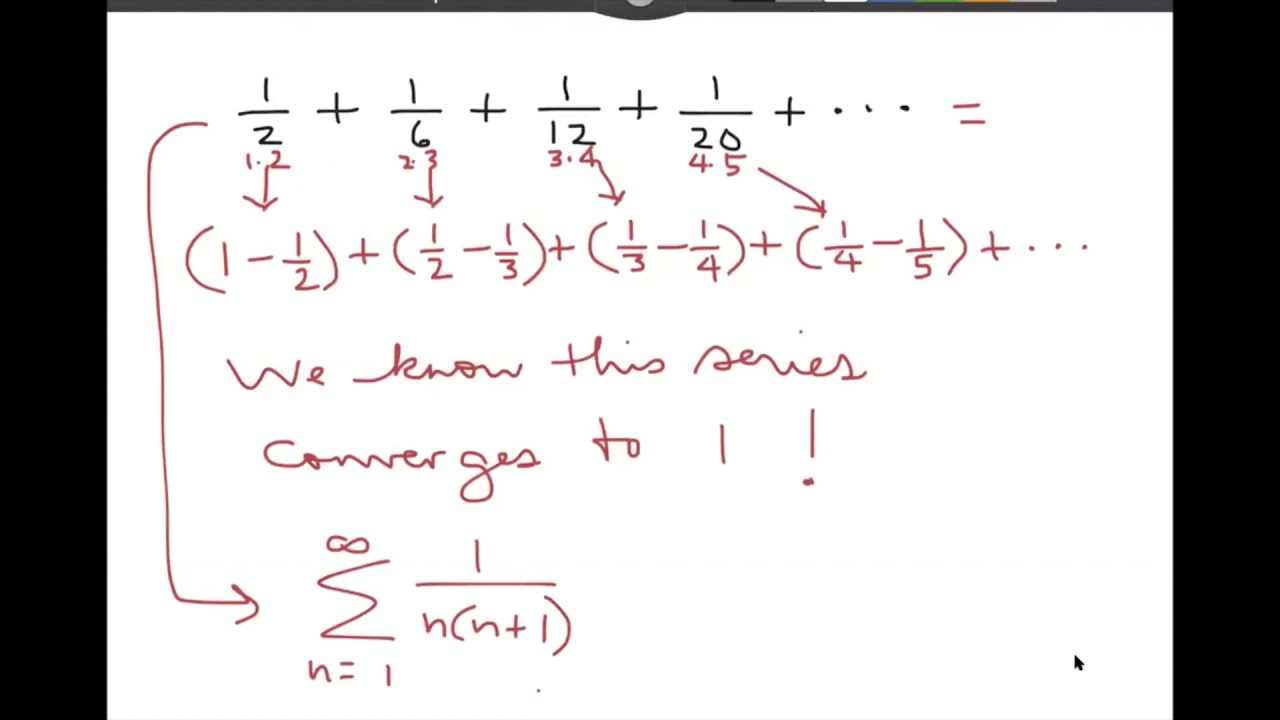 1/2 + 1/6 + 1/12 + 1/20 + ... =
1·2 2·3 3·4 4·5
(1 - 1/2) + (1/2 - 1/3) + (1/3 - 1/4) + (1/4 - 1/5) + ...
We know this series
converges to 1 !
∞
∑ 1/n(n+1)
n=1